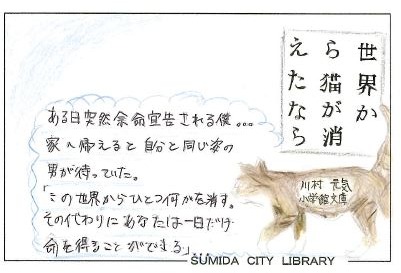 世界か
ら猫が消
えたなら
ある日突然余命宣告される僕…
家へ帰えると自分と同じ姿の
男が待っていた。
「この世界からひとつ何かを消す。
その代わりにあなたは一日だけ
命を得ることができる」
川村 元気
小学館文庫
SUMIDA CITY LIBRARY